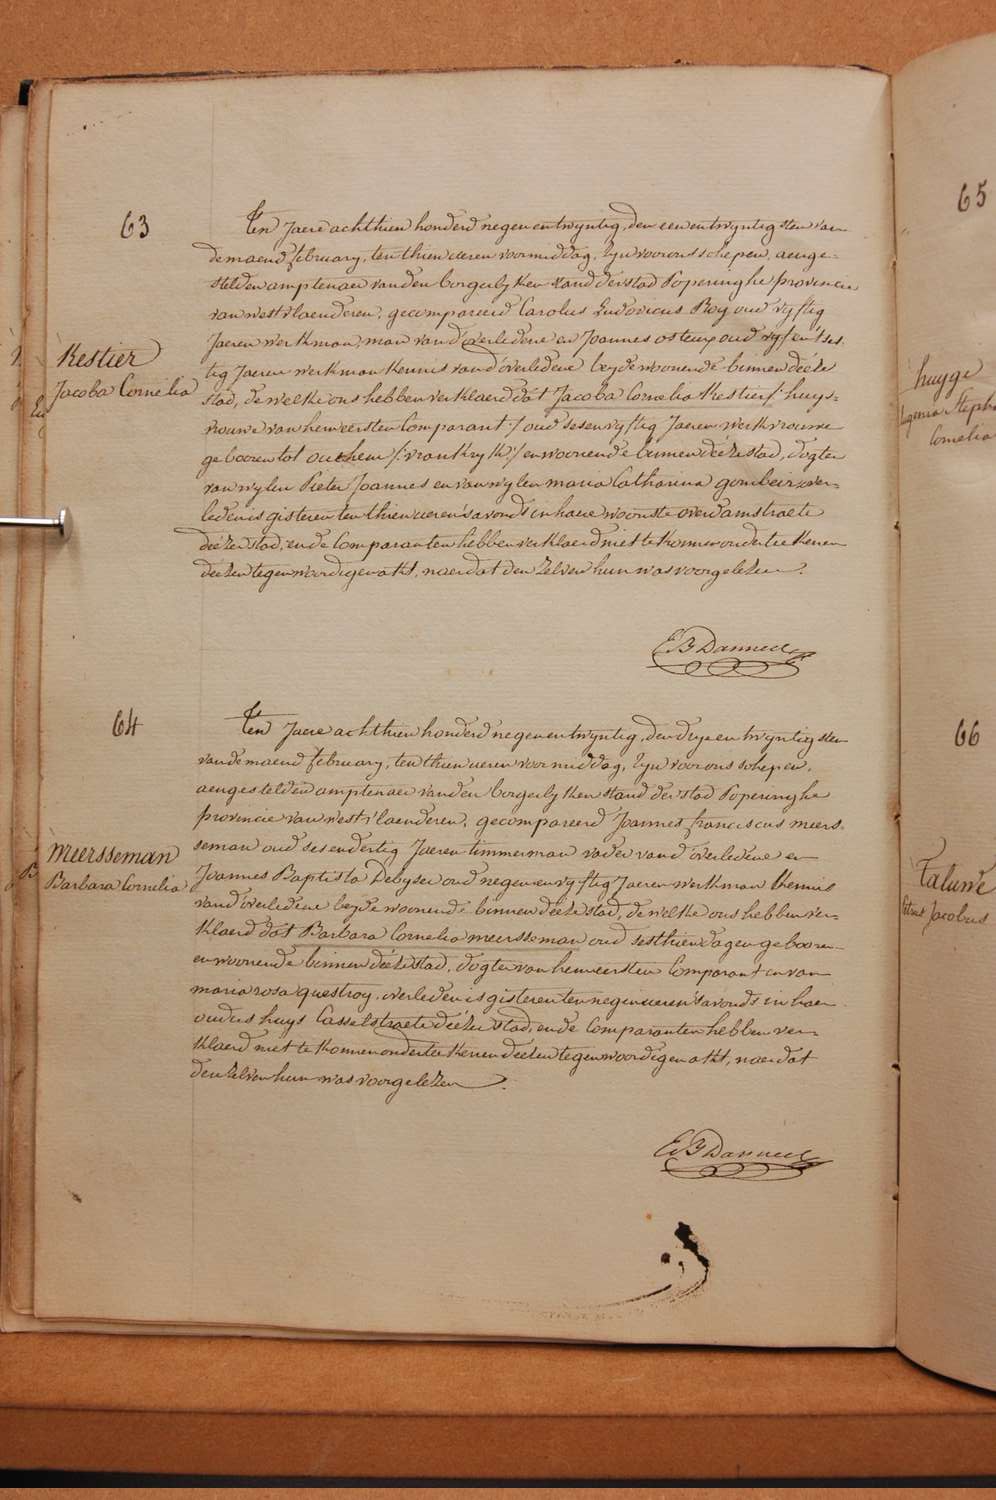 63
Kestier
Jacoba Cornelia
Ten Jaere achthien honderd negen en twyntig, den een en twyntigsten van
de maend february, ten thien ueren voormiddag, Zyn voor ons schepen, aenge-
stelden amptenaer van den borgerlyken stand der stad Poperinghe provincie
van westvlaenderen, gecompareerd Carolus Ludovicus Roy oud vyftig
Jaeren werkman, man van d'overledene en Joannes osteux oud vyf en tses-
tig Jaeren werkman kennis van d'overledene beyde woonende binnen déeze
stad, de welke ons hebben verklaerd dat Jacoba Cornelia Kestier /: huys-
vrouwe van hem eersten Comparant :/ oud ses en vyftig Jaeren werkvrouwe
gebooren tot ouchem /: vrankryk :/ en woonende binnen déeze stad, dogter
van wylen Pieter Joannes en van wylen maria Catharina gombeir, over-
leden is gisteren ten thien ueren s'avonds in haere woonste overdamstraete
déézer stad, en de Comparanten hebben verklaerd niet te konnen onderteekenen
deezen tegenwoordigen akt, naer dat den zelven hun was voorgelezen.
E B Danneel
64
Meersseman
Barbara Cornelia
Ten Jaere achthien honderd negen en twyntig, den dry en twyntigsten
van de maend february, ten thien ueren voormiddag, Zyn voor ons schepen,
aengestelden amptenaer van den borgerlyken stand der stad Poperinghe
provincie van westvlaenderen, gecompareerd Joannes franciscus meers-
seman oud ses en dertig Jaeren timmerman vader van d'overledene en
Joannes Baptista Debyser oud negen en vyftig Jaeren werkman kennis
van d'overledene beyde woonende binnen déeze stad, de welke ons hebben ver-
klaerd dat Barbara Cornelia meersseman oud sesthien dagen gebooren
en woonende binnen déeze stad, dogter van hem eersten Comparant en van
maria rosa questroy, overleden is gisteren ten negen ueren s'avonds in haer
ouders huys Casselstraete déezer stad, en de Comparanten hebben ver-
klaerd niet te konnen onderteekenen déezen tegenwoordigen akt, naer dat
den zelven hun was voorgelezen.
E B Danneel
65
huyge
Eugenia Steph
Cornelia
66
Taluwe
Petrus Jacobus